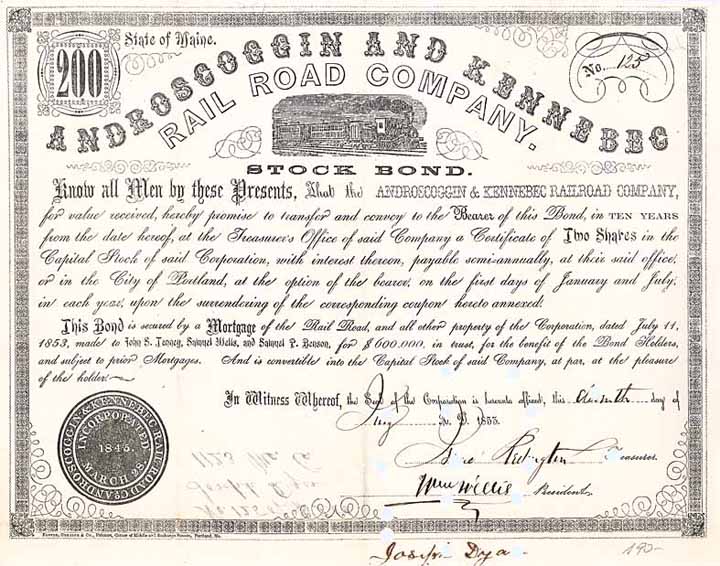 200
State of Maine.
No. 125
ANDROSCOGGIN AND KENNEBEC
RAIL ROAD COMPANY.
STOCK BOND.
Know all Men by these Presents, That the ANDROSCOGGIN & KENNEBEC RAILROAD COMPANY,
for value received, hereby promise to transfer and convey to the Bearer of this Bond, in TEN YEARS
from the date hereof, at the Treasurer's Office of said Company a Certificate of Two Shares in the
Capital Stock of said Corporation, with interest thereon, payable semi-annually, at their said office,
or in the City of Portland, at the option of the bearer, on the first days of January and July,
in each year, upon the surrendering of the corresponding coupon hereto annexed.
This Bond is secured by a Mortgage of the Rail Road, and all other property of the Corporation, dated July 11,
1853, made to John S. Tenney, Samuel Wells, and Samuel P. Benson, for $600.000, in trust, for the benefit of the Bond Holders,
and subject to prior Mortgages. And is convertible into the Capital Stock of said Company, at par, at the pleasure
of the holder.
In Witness Whereof, the Seal of the Corporation is hereunto affixed, this eleventh day of
July A. D. 1853.
Treasurer.
Wm Willis President.
ANDROSCOGGIN & KENNEBEC RAILROAD CO.
INCORPORATED
1845.
MARCH 28
Joseph Dya
190-